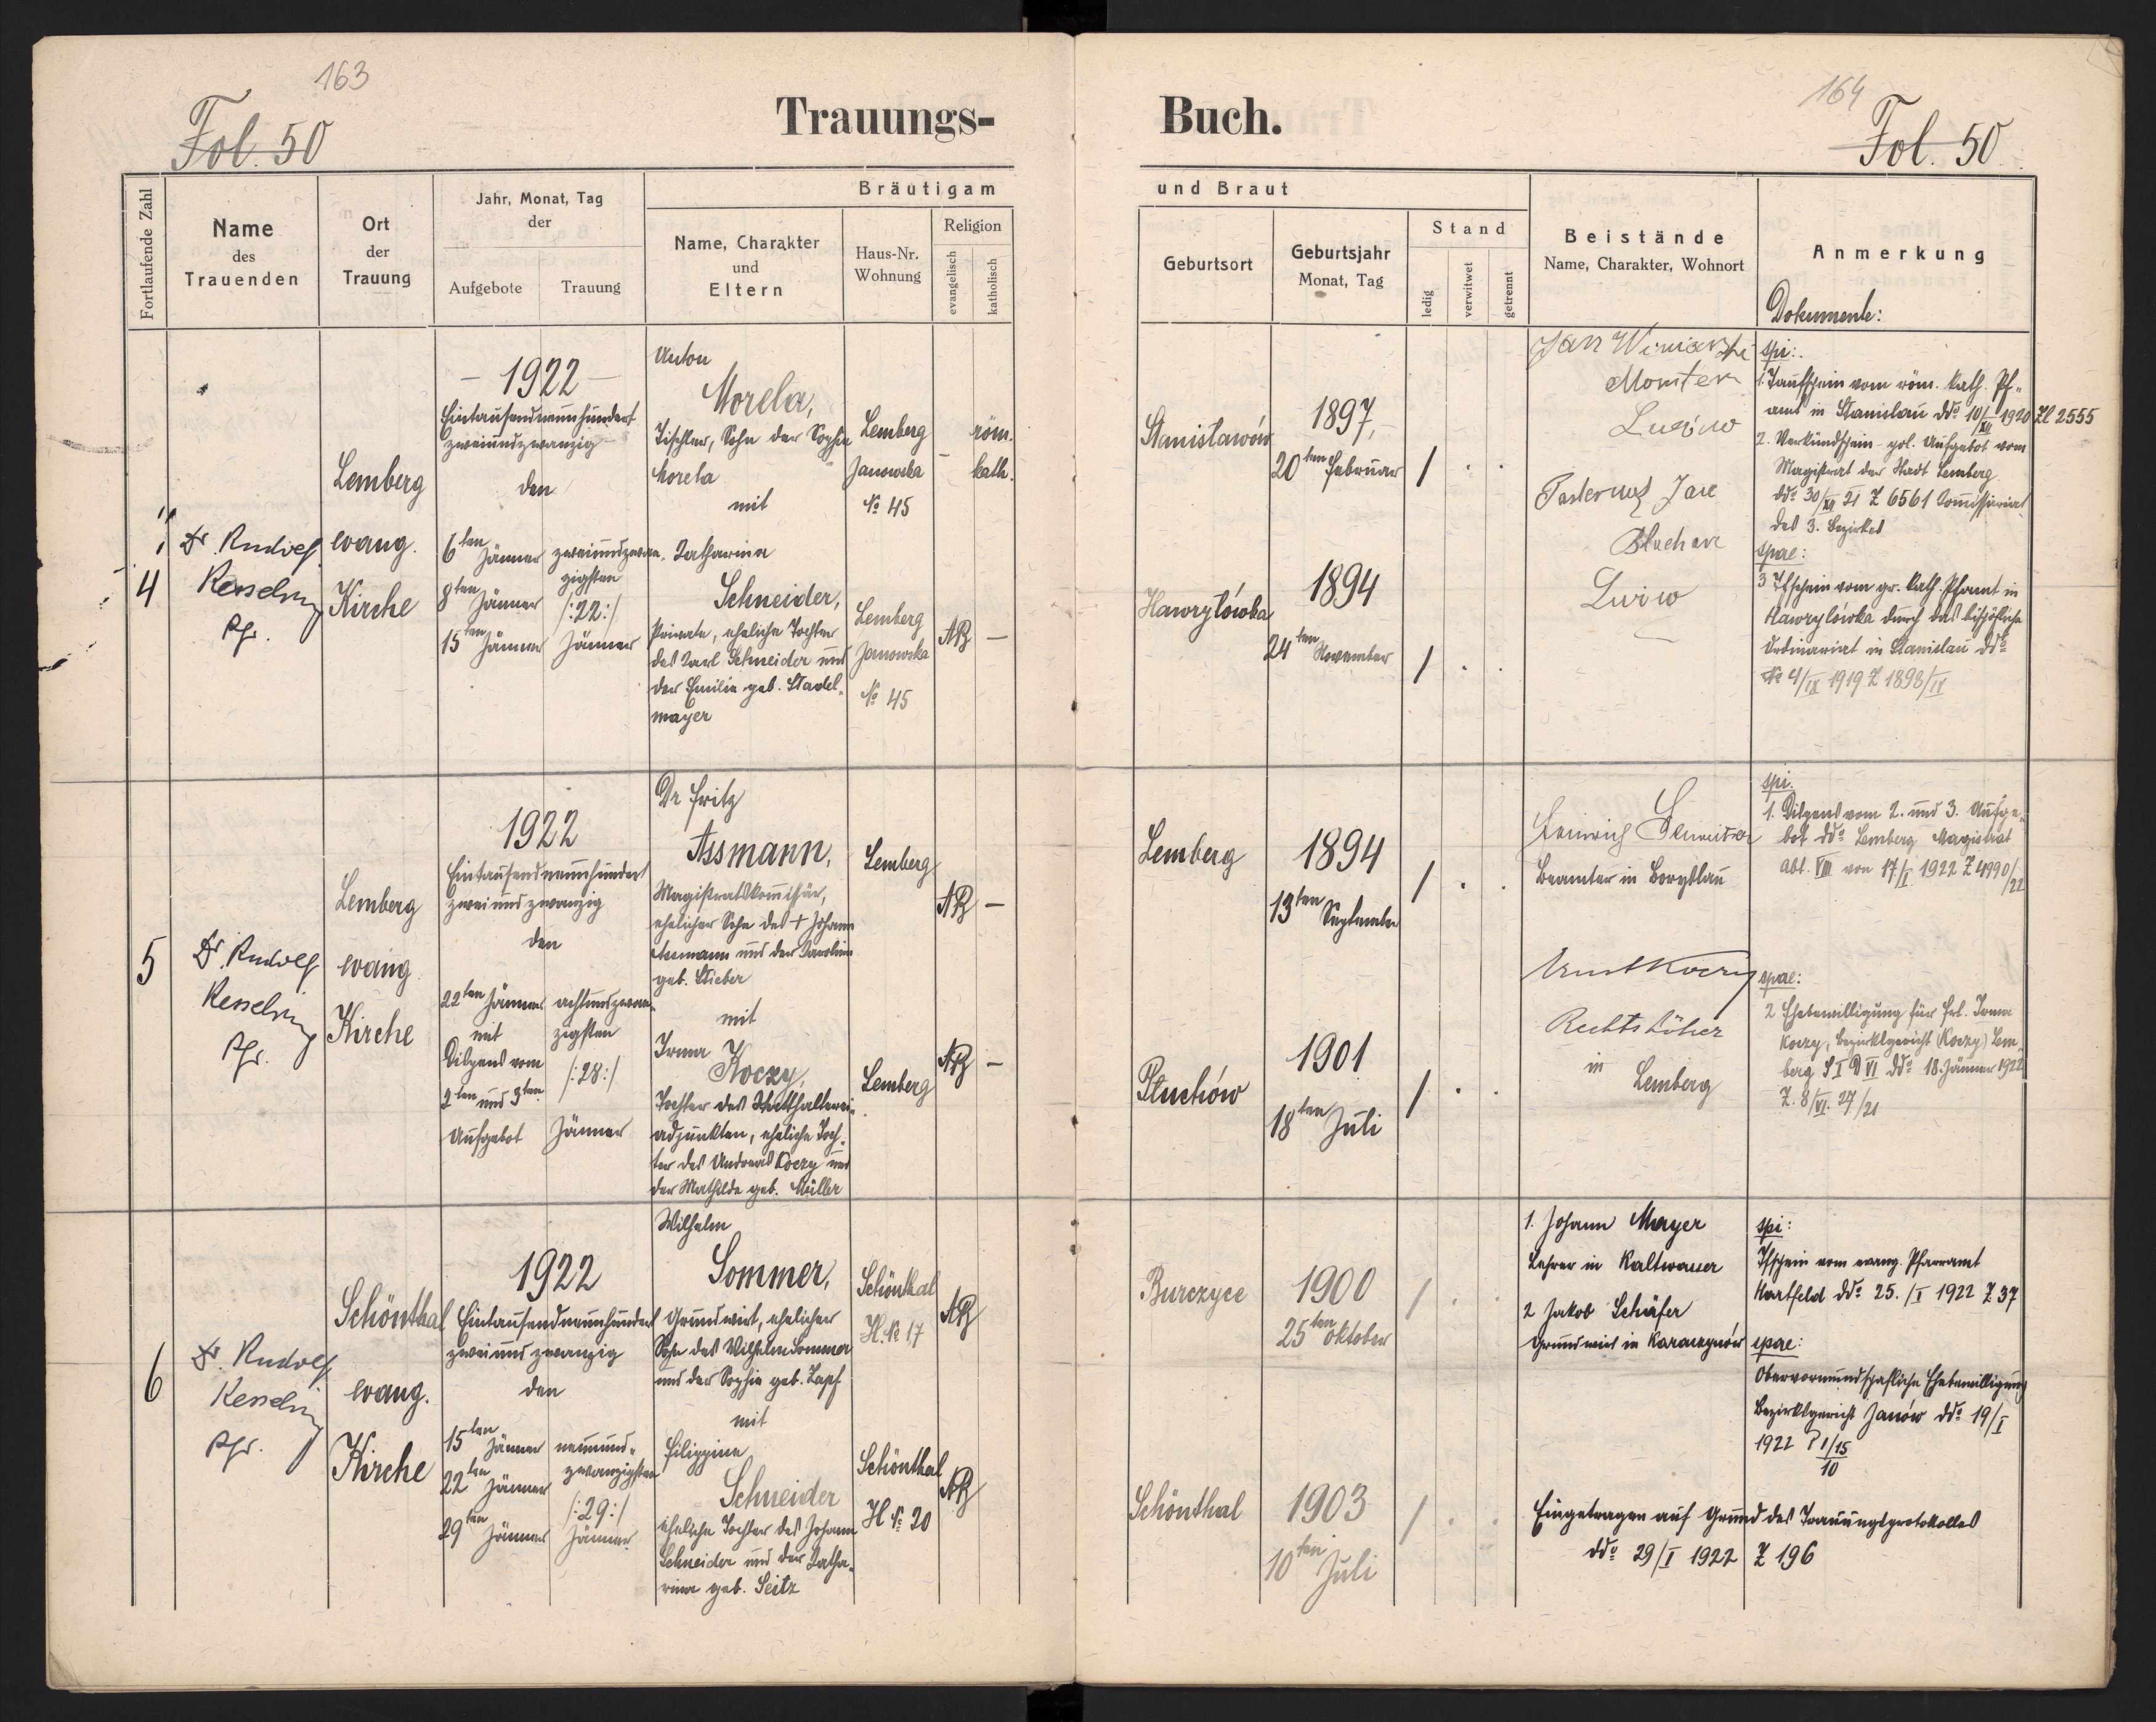 163
Fol. 50
Trauungs-
Fortlaufende Zahl
Name
des
Trauenden
Ort
der
Trauung
Jahr, Monat, Tag
der
Aufgebote
Trauung
Bräutigam
Name, Charakter
und
Eltern
Haus-Nr.
Wohnung
Religion
evangelisch
katholisch
4
Dr. Rudolf
Kesselring
Pfr.
Lemberg
evang.
Kirche
– 1922 –
Eintausendneunhundert
zweiundzwanzig
den
6ten Jänner
8ten Jänner
15ten Jänner
zweiundzwan-
zigsten
/:22:/
Jänner
Anton
Morela,
Tischler, Sohn der Sophie
Morela
mit
Katharina
Schneider,
Private, eheliche Tochter
des Karl Schneider und
der Emilie geb. Stadel-
mayer
Lemberg
Janowska
№ 45
Lemberg
Janowska
№ 45
–
röm.
kath.
AB –
5
Dr. Rudolf
Kesselring
Pfr.
Lemberg
evang.
Kirche
1922
Eintausendneunhundert
zweiundzwanzig
den
22ten Jänner
mit
Dispens vom
2ten und 3ten
Aufgebot
achtundzwan-
zigsten
/:28:/
Jänner
Dr Fritz
Assmann,
Magistratskommissär,
ehelicher Sohn des + Johann
Assmann und der Karoline
geb. Stieber
mit
Irma
Koczy,
Tochter des Statthalterei-
adjunkten, eheliche Toch-
ter des Andreas Koczy und
der Mathilde geb. Müller
Lemberg
Lemberg
AB –
AB –
6
Dr. Rudolf
Kesselring
Pfr.
Schönthal
evang.
Kirche
1922
Eintausendneunhundert
zweiundzwanzig
den
15ten Jänner
22ten Jänner
29ten Jänner
neunund-
zwanzigsten
/:29:/
Jänner
Wilhelm
Sommer,
Grundwirt, ehelicher
Sohn des Wilhelm Sommer
und der Sophie geb. Zapf
mit
Filippine
Schneider
eheliche Tochter des Johann
Schneider und der Katha-
rina geb. Seitz
Schönthal
H. № 17
Schönthal
H № 20
AB
AB
164
Fol. 50
Buch.
und Braut
Geburtsort
Geburtsjahr
Monat, Tag
Stand
ledig
verwitwet
getrennt
Beistände
Name, Charakter, Wohnort
Anmerkung
Dokumente:
Stanisławów
1897,
20ten Februar
/ . .
Hawryłówka
1894
24ten November
/ . .
Jan Winiarski
Monter
Lwów
Jan
Blacharz
Lwów
spi:
1. Taufschein vom röm. kath. Pf-
amt in Stanislau ddo 10/XII 1920 Zl 2555
2. Verkündschein – pol. Aufgebot vom
Magistrat der Stadt Lemberg
ddo 30/XII 21 Z 6561 Kommissariat
des 3. Bezirkes
spae:
3 Tfschein vom gr. kath. Pfarramt in
Hawryłówka durch das bischöfliche
Ordinariat in Stanislau ddo
4/IX 1919 Z 1898/IX
Lemberg
1894
13ten September
/ . .
Płuchów
1901
18ten Juli
/ . .
Heinrich Schneider
Beamter in Boryslau
Ernst Koczy
Rechtshörer
in
Lemberg
spi.
1. Dispens vom 2. und 3. Aufge-
bot ddo Lemberg Magistrat
Abt. VIII von 17/I 1922 Z 4990/22
spae:
2 Ehebewilligung für Frl. Irma
Koczy, Bezirksgericht (Koczy) Lem-
berg S I D VI ddo 18. Jänner 1922
Z. 8/VI. 27/21
Burczyce
1900
25ten Oktober
/ . .
Schönthal
1903
10ten Juli
/ . .
1. Johann Mayer
Lehrer in Kaltwasser
2 Jakob Schäfer
Grundwirt in Karaczynów
spi:
Tfschein vom evang. Pfarramt
Hartfeld ddo 25. /I 1922 Z 37
spae:
Obervormundschaftliche Ehebewilligung
Bezirksgericht Janów ddo 19/I
1922 P 1/15
10
Eingetragen auf Grund des Trauungsprotokolles
ddo 29/I 1922 Z 196